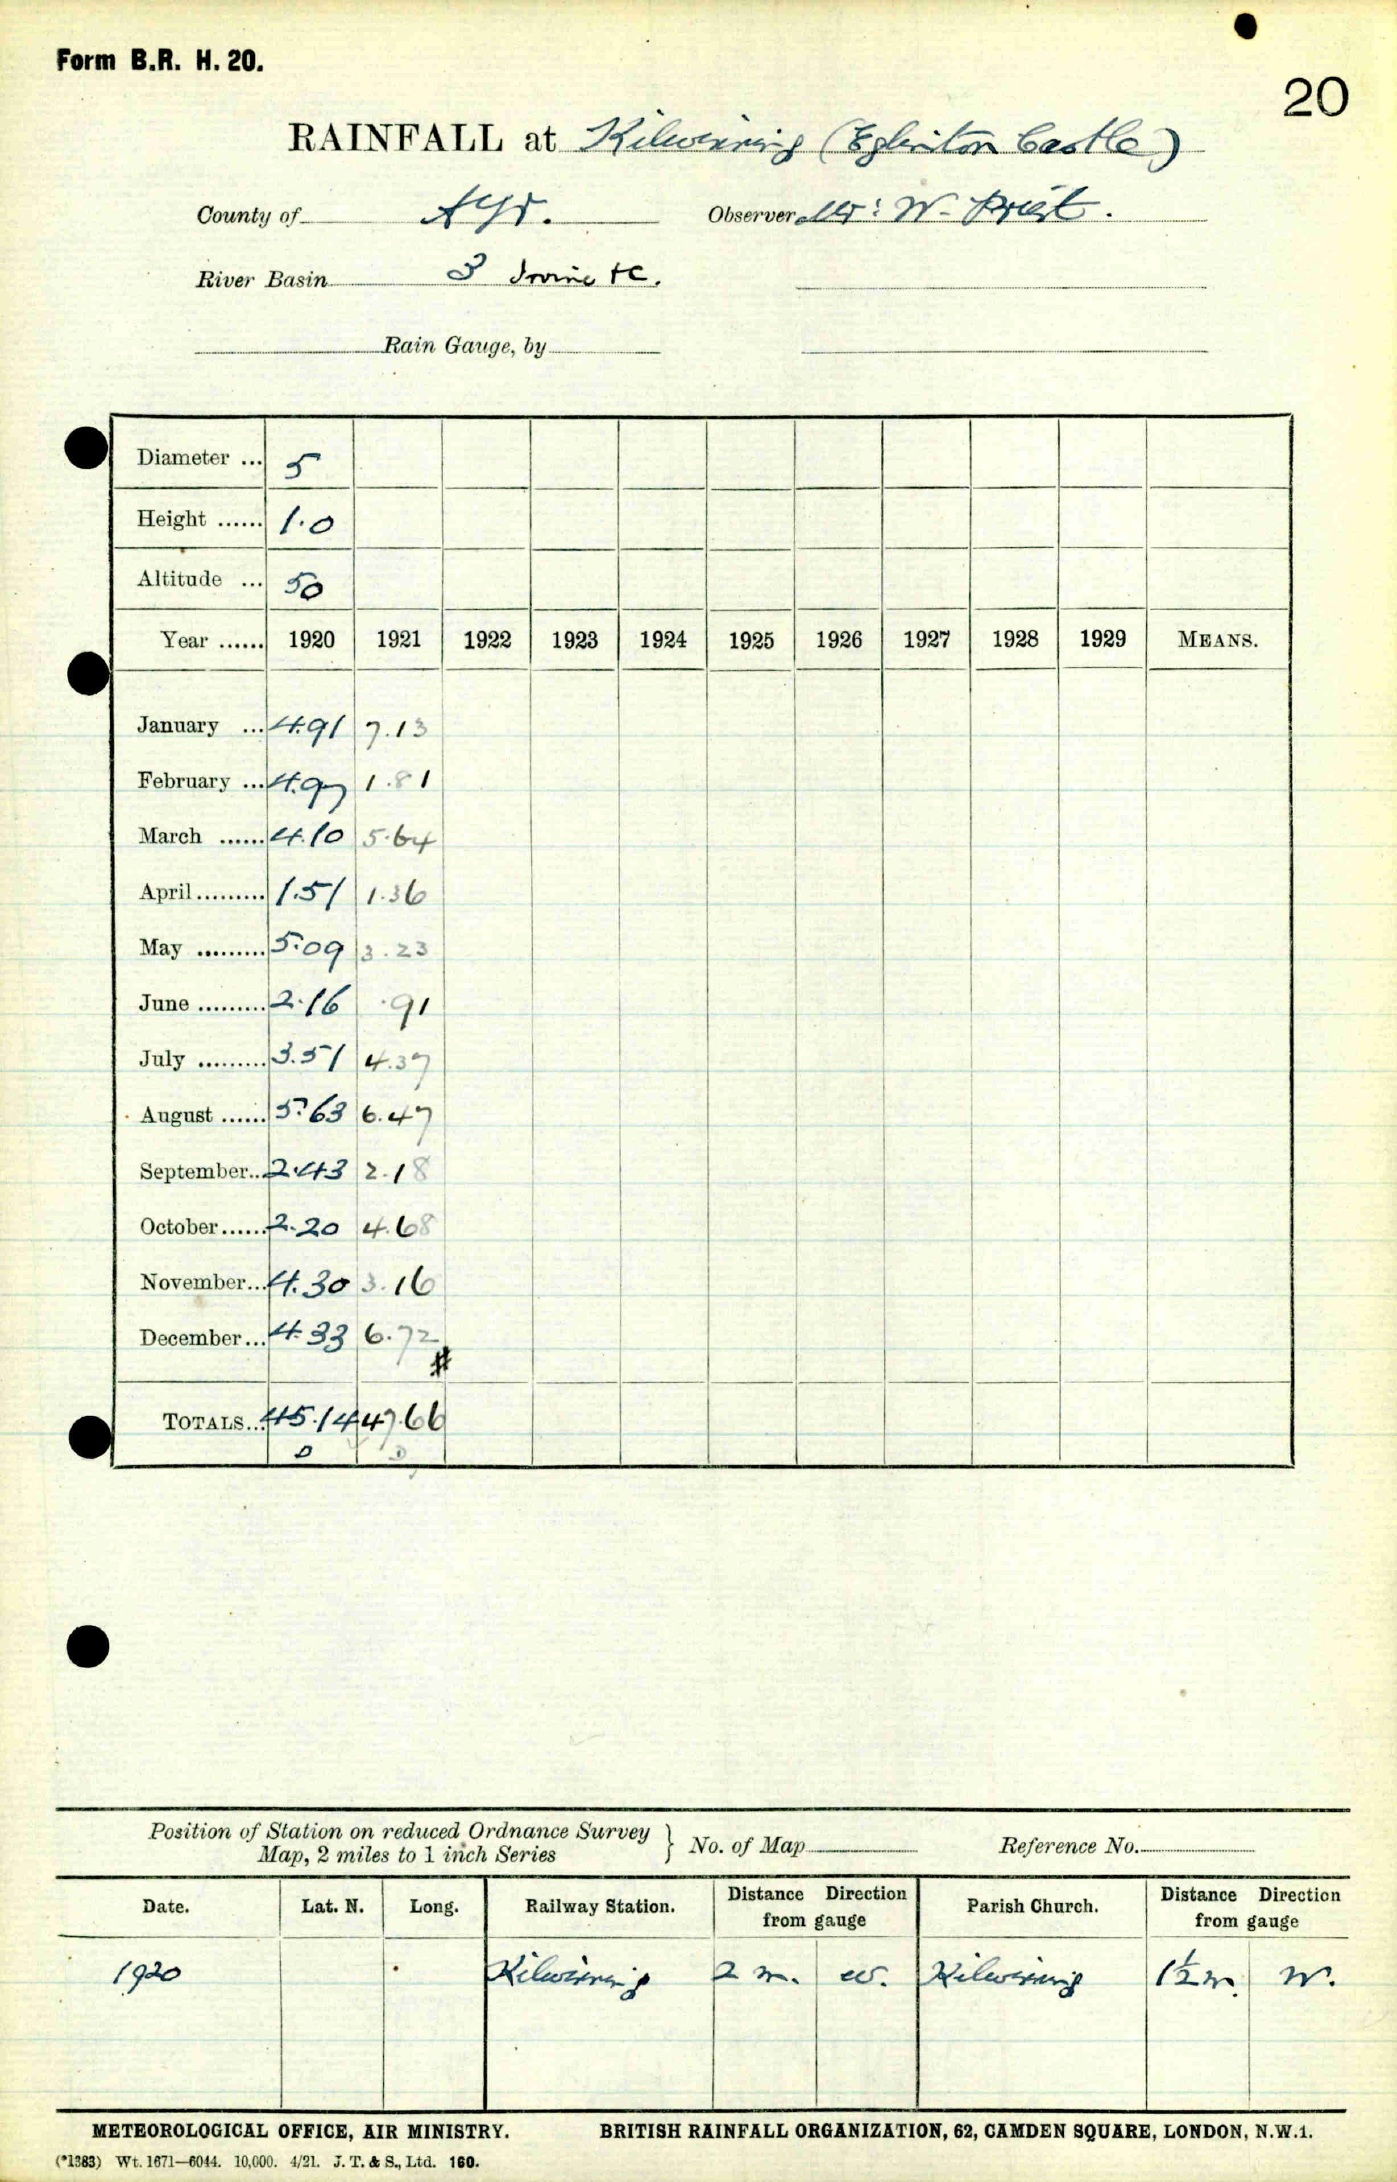 Form B.R. H. 20.
20
RAINFALL at Kilwinning (Eglinton Castle)
County of Ayr. Observer Mr: W. Priest.
River Basin 3 Irvine &c.
Rain Gauge, by
Diameter ... 5
Height ...... 1.0
Altitude ... 50
Year ...... 1920 1921 1922 1923 1924 1925 1926 1927 1928 1929 MEANS.
January ... 4.91 7.13
February ... 4.97 1.81
March ...... 4.10 5.64
April......... 1.51 1.36
May ......... 5.09 3.23
June ......... 2.16 .91
July ......... 3.51 4.37
August ...... 5.63 6.47
September.. 2.43 2.18
October...... 2.20 4.68
November... 4.30 3.16
December... 4.33 6.72
#
TOTALS... 45.14 47.66
Position of Station on reduced Ordnance Survey
Map, 2 miles to 1 inch Series } No. of Map Reference No.
Date. Lat. N. Long. Railway Station. Distance Direction from gauge Parish Church. Distance Direction from gauge
1920 Kilwinning 2 m. W. Kilwinning 1½ m. W.
METEOROLOGICAL OFFICE, AIR MINISTRY. BRITISH RAINFALL ORGANIZATION, 62, CAMDEN SQUARE, LONDON, N.W.1.
(*1383) Wt. 1671—6044. 10,000. 4/21. J. T. & S., Ltd. 160.